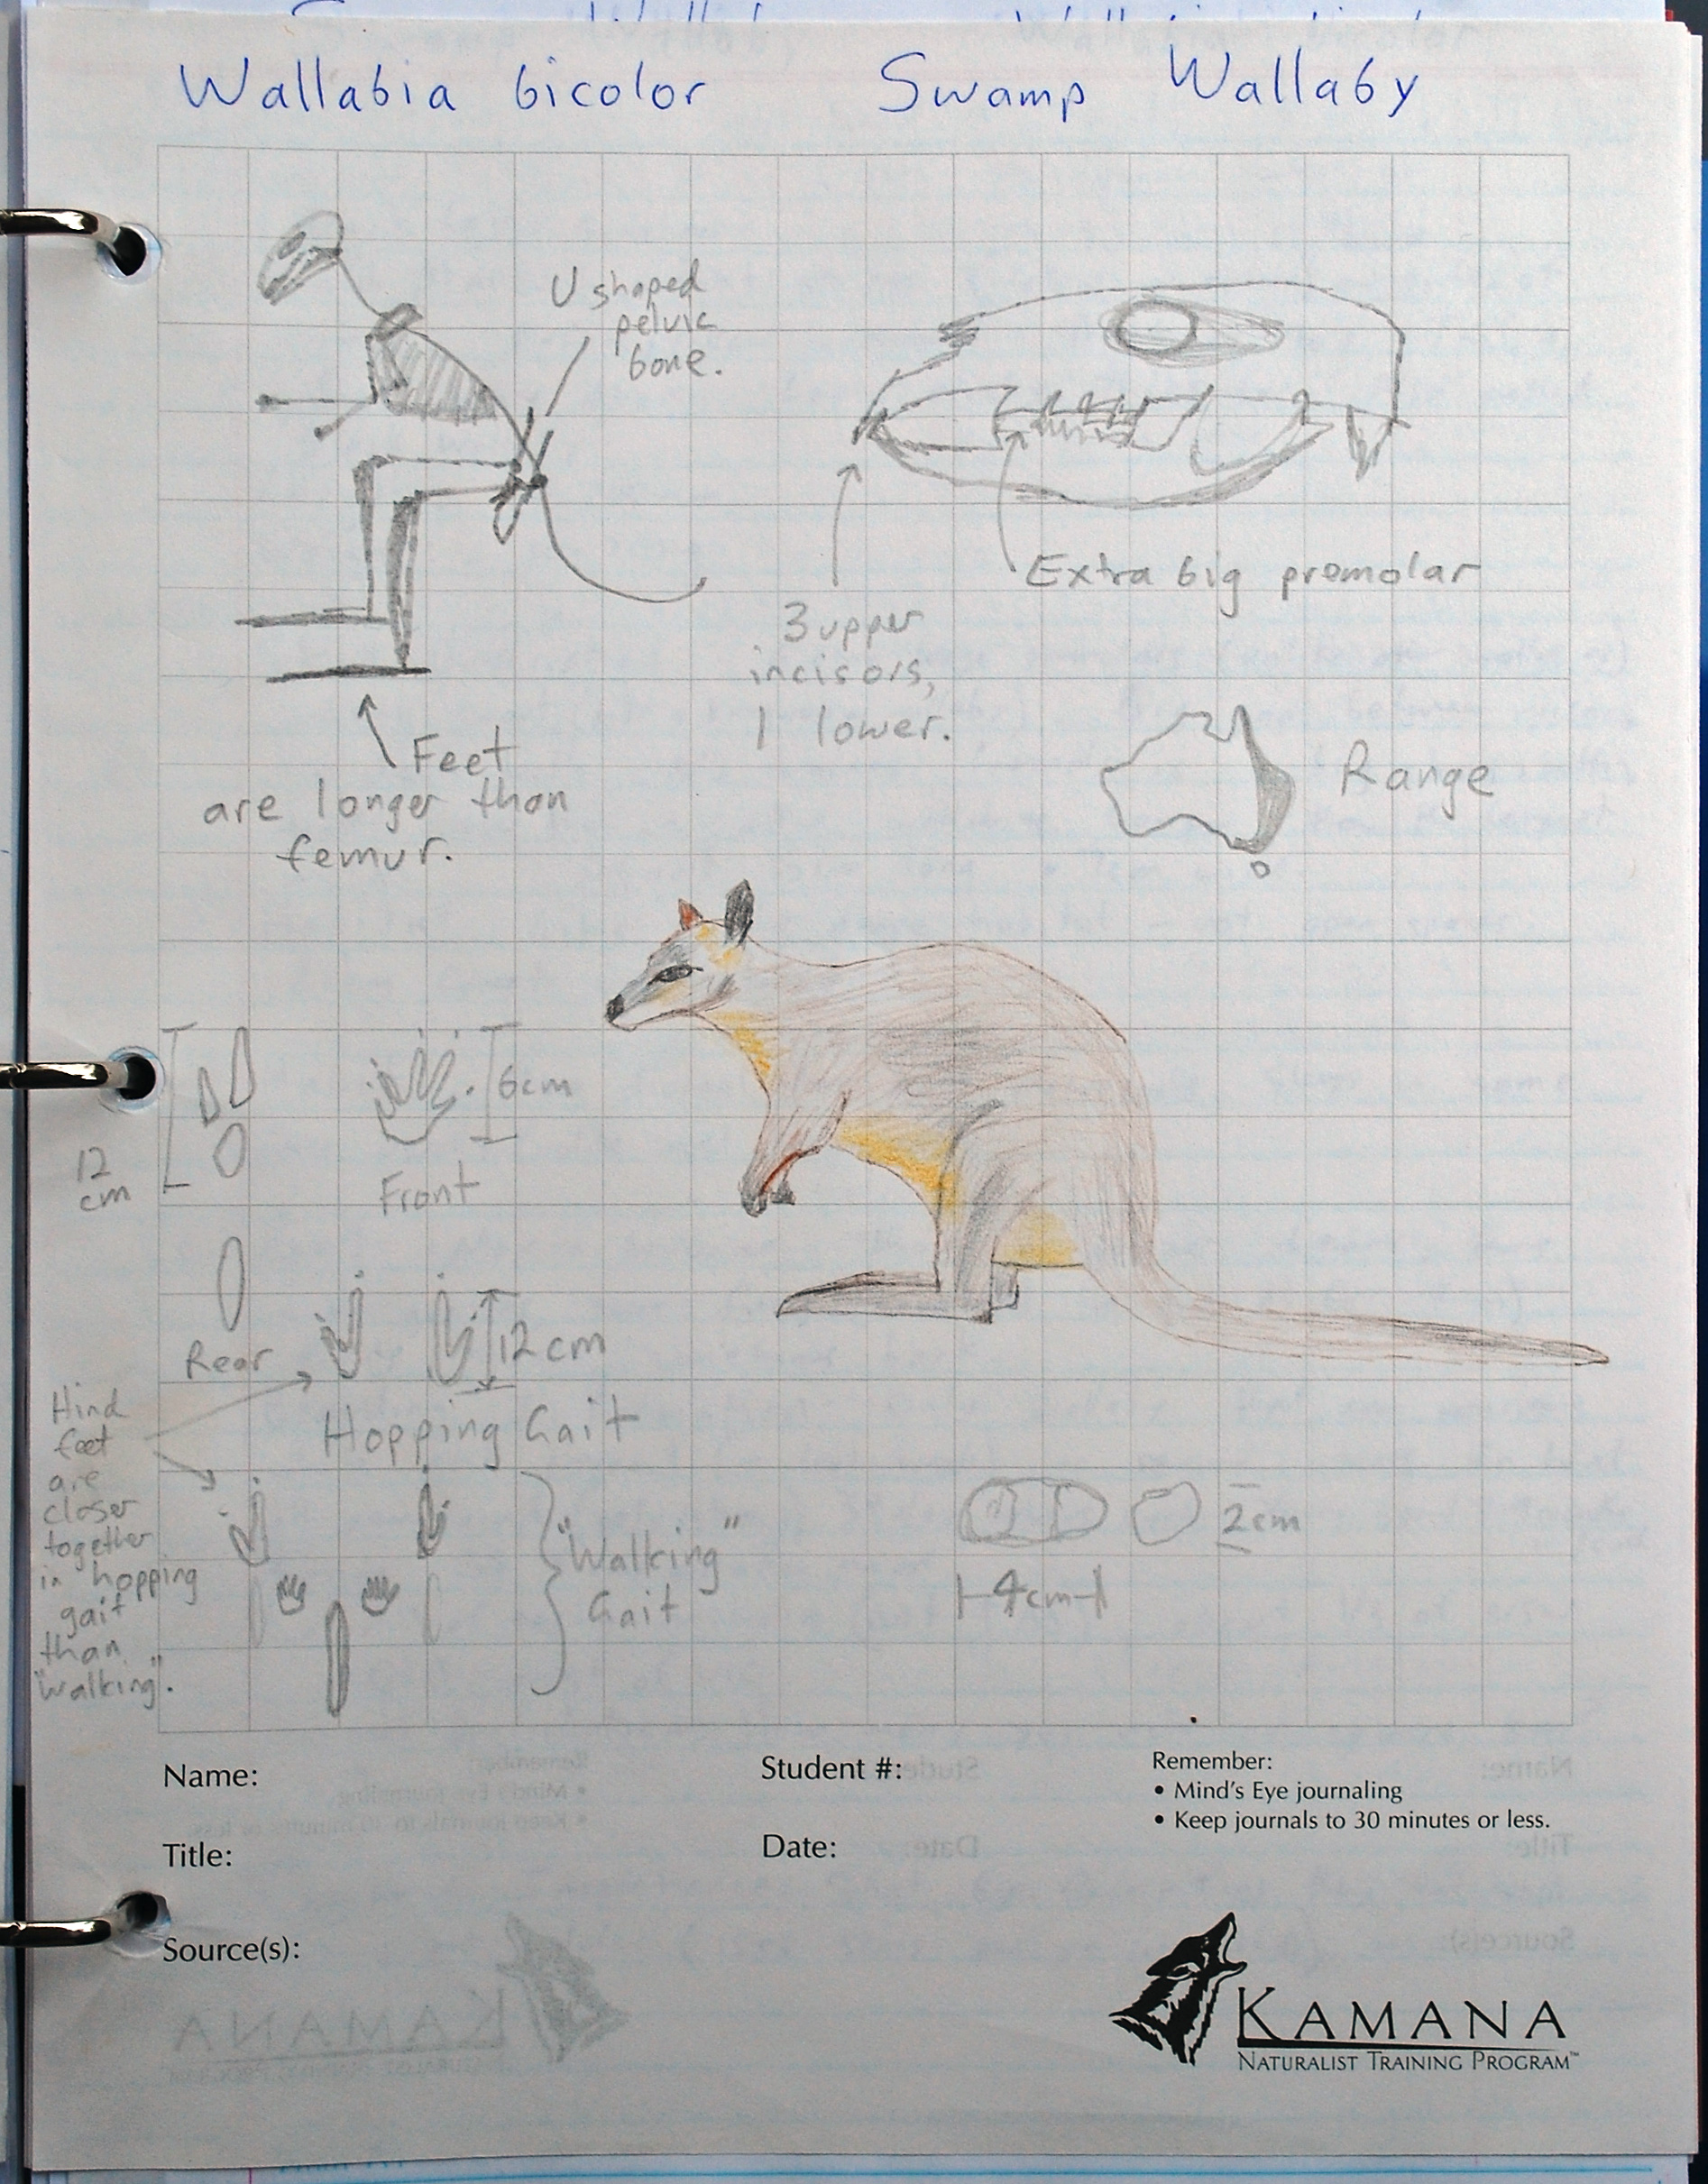 Wallabia bicolor Swamp Wallaby
U shaped
pelvic
bone.
Extra big premolar
3 upper
incisors,
1 lower.
Feet
are longer than
femur.
Range
6cm
12
cm
Front
Rear
12 cm
Hopping Gait
Hind
feet
are
closer
together
in hopping
gait
than
"walking".
"Walking"
Gait
2cm
4cm
Name:
Student #:
Remember:
• Mind's Eye journaling
• Keep journals to 30 minutes or less.
Title:
Date:
Source(s):
KAMANA
NATURALIST TRAINING PROGRAM™